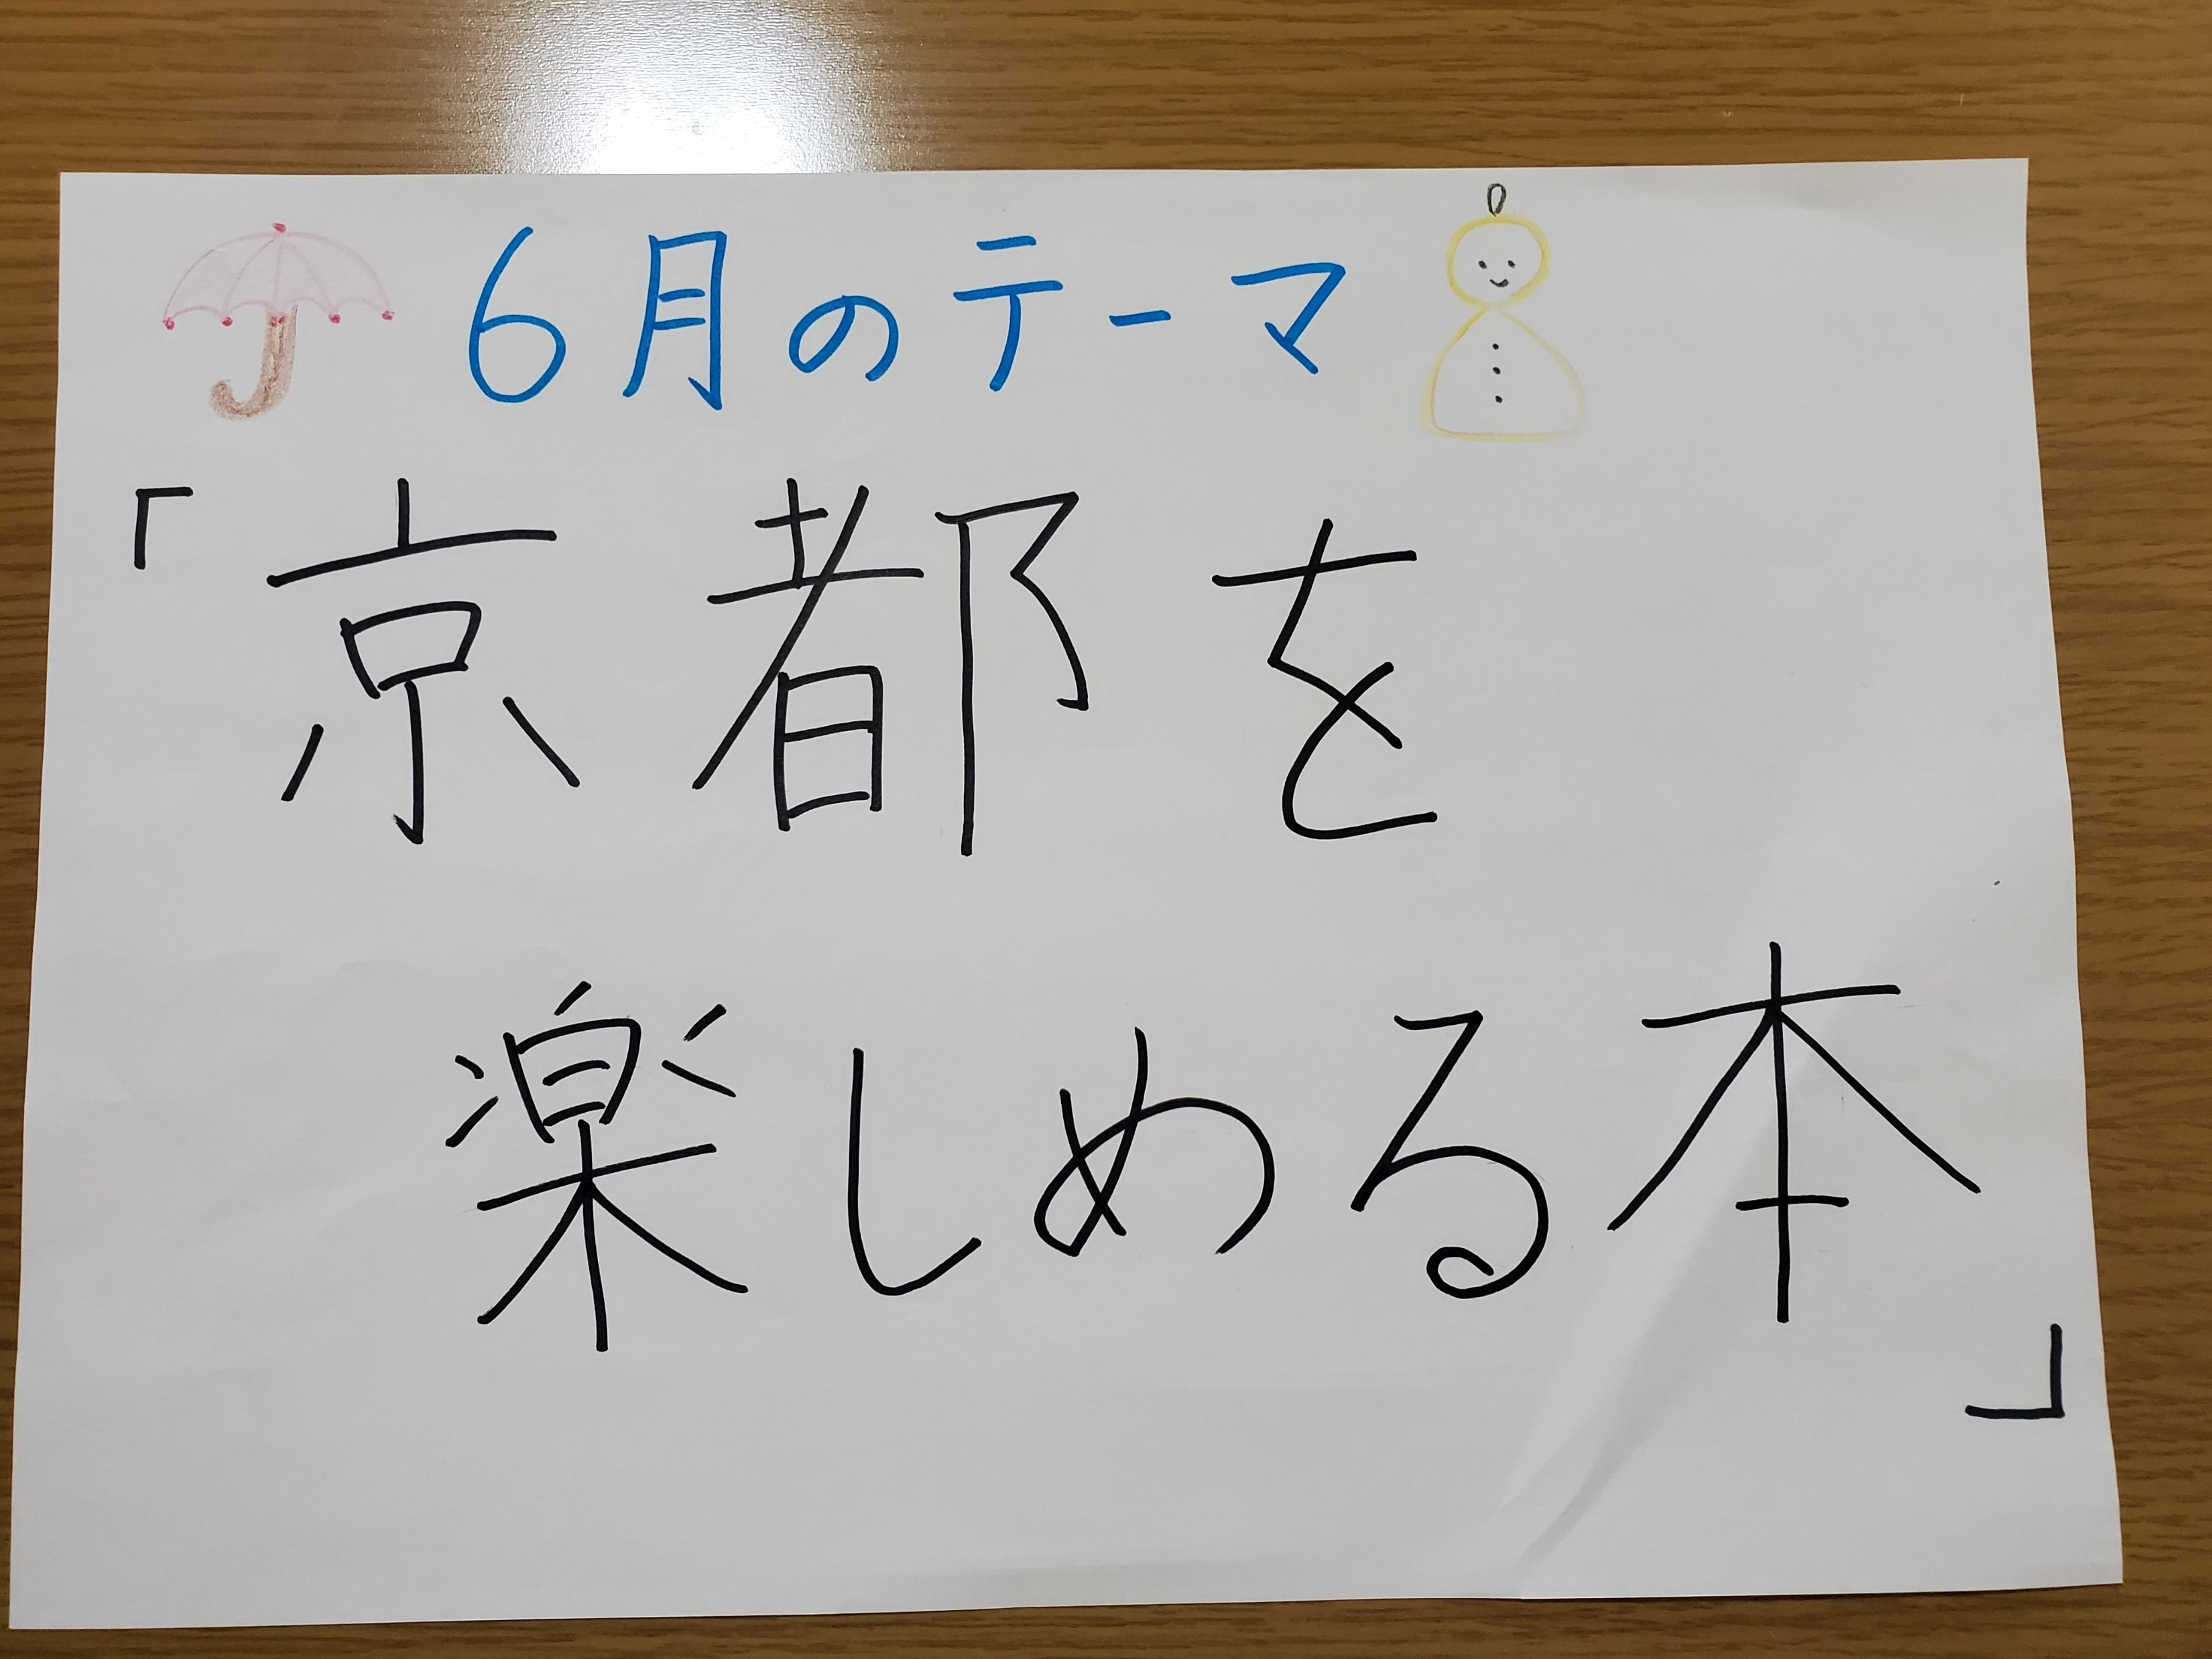 6月のテーマ
「京都を
楽しめる本」